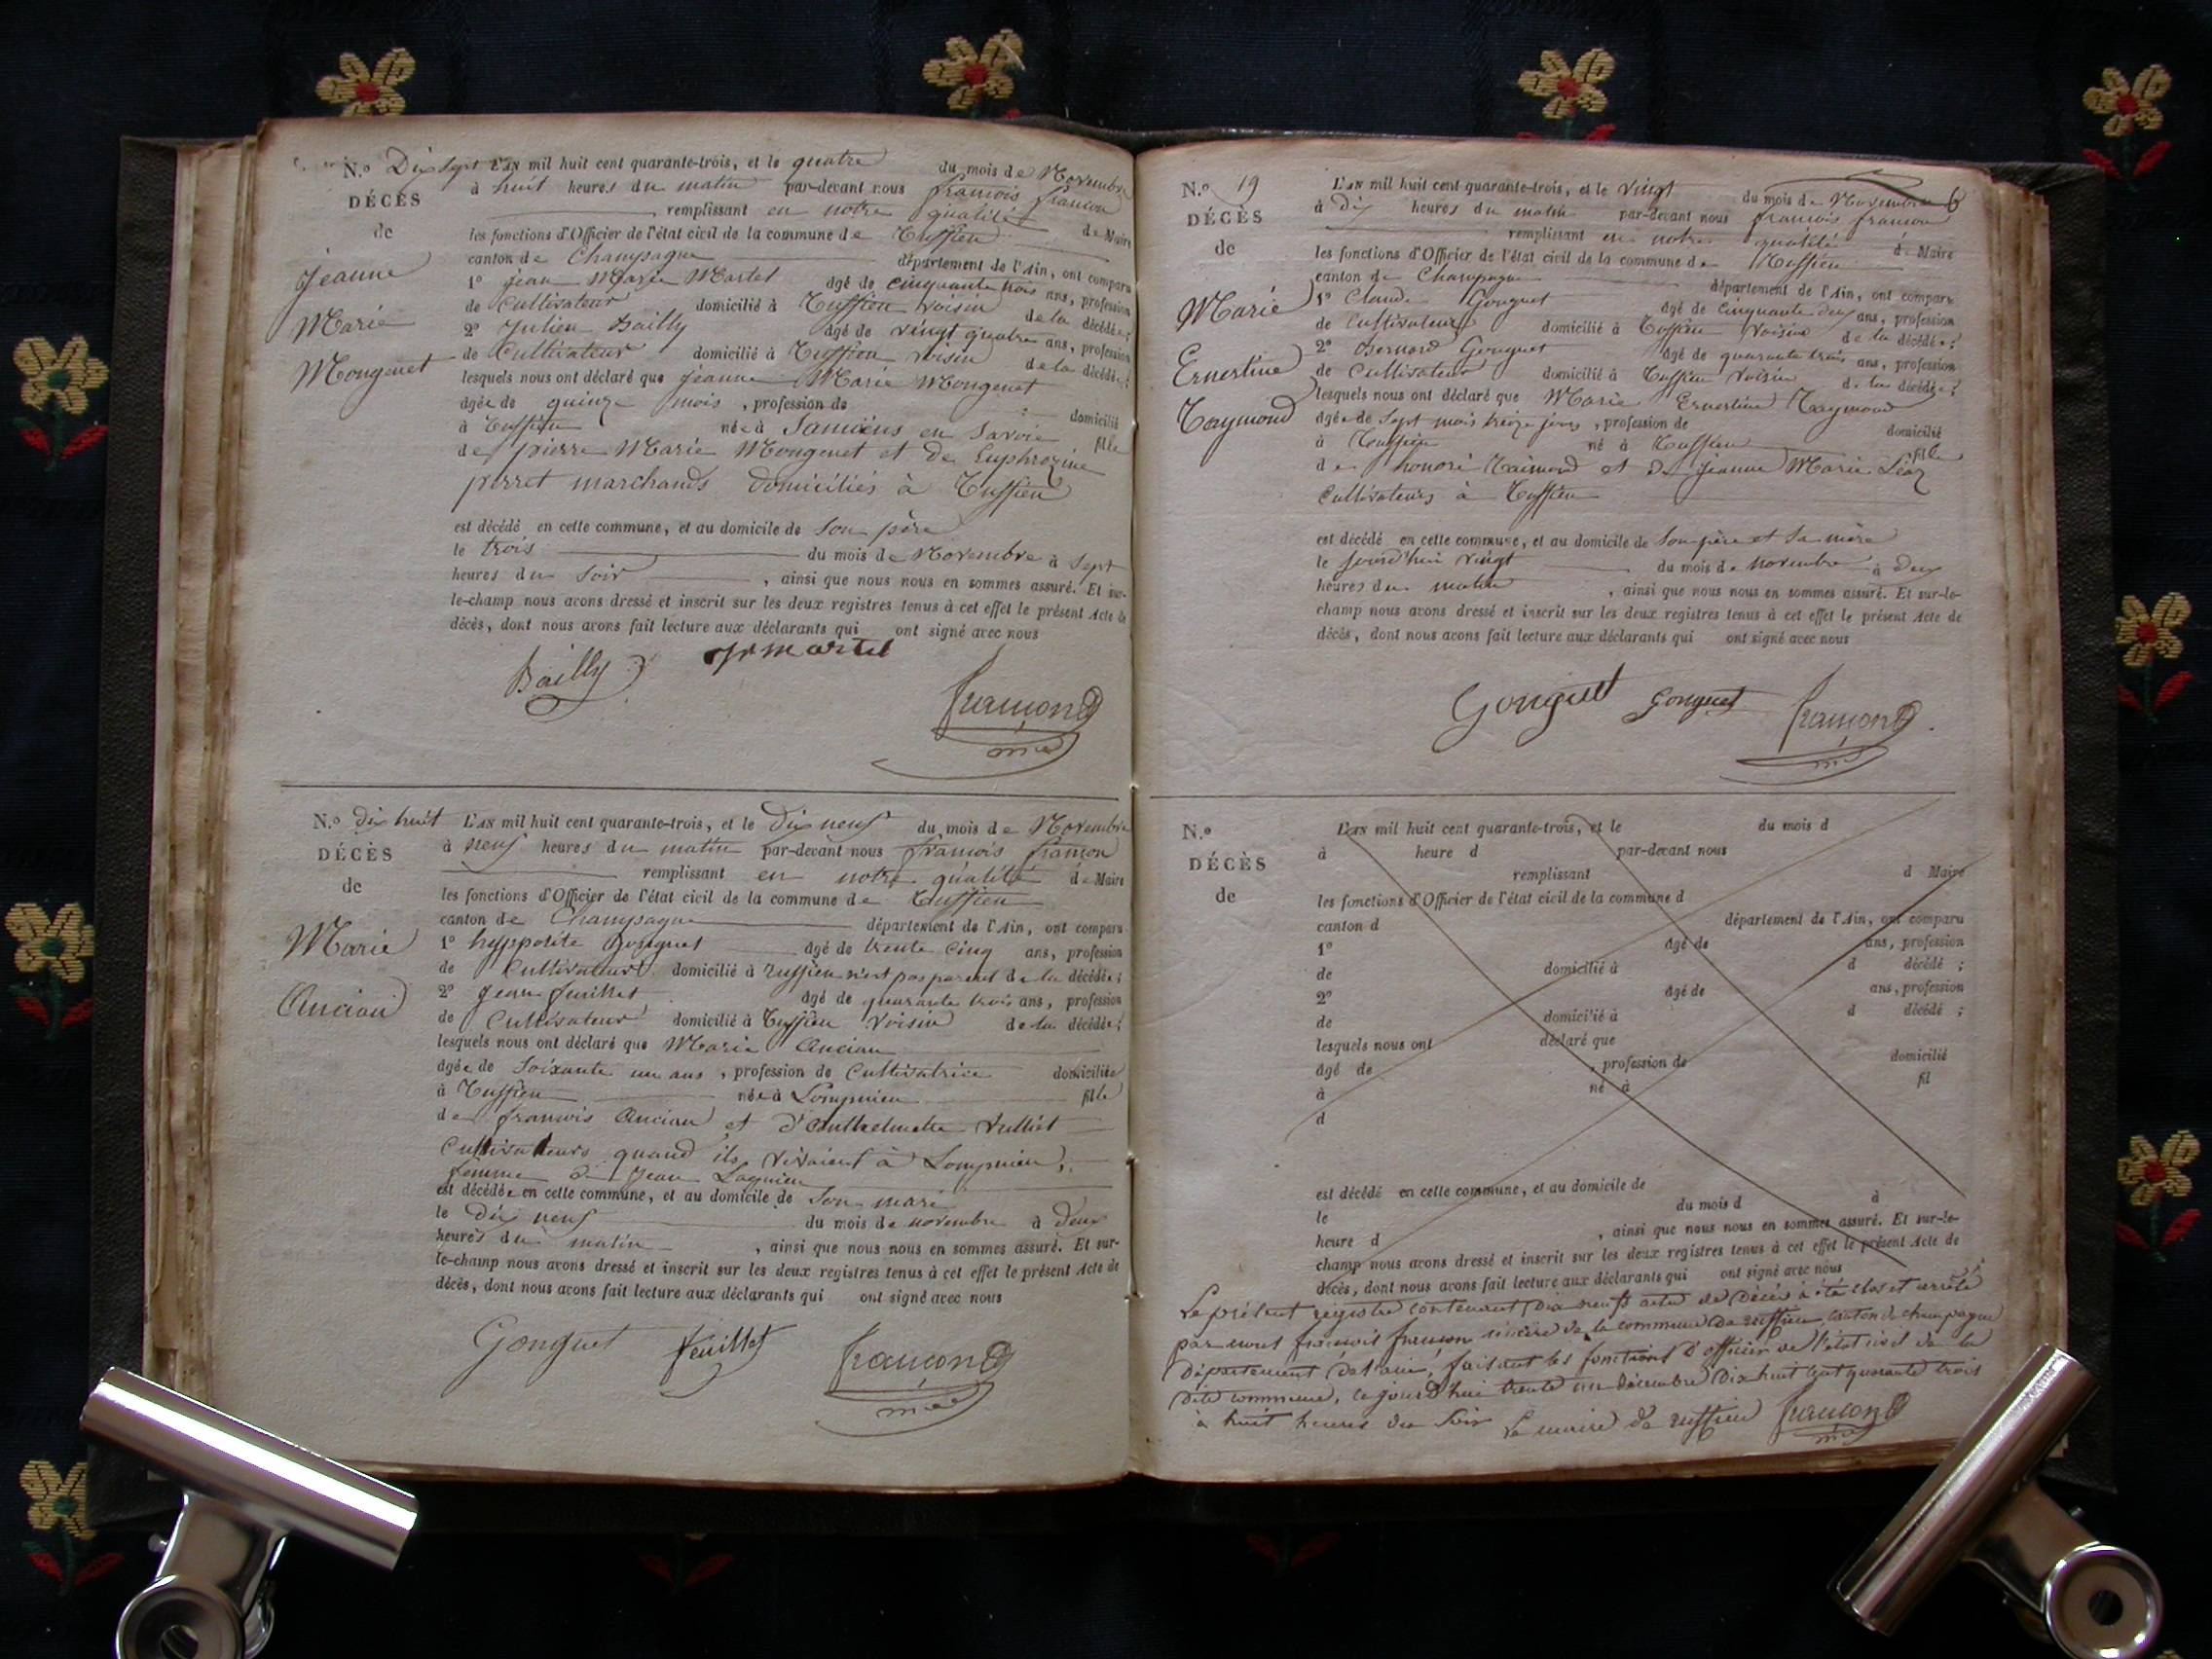 N.º Dix Sept
DÉCÈS
de
Jeanne
Marie
Mongenet
L'AN mil huit cent quarante-trois, et le quatre du mois de Novembre
à huit heures du matin par-devant nous francois francon
remplissant en notre qualité de Maire
les fonctions d'Officier de l'état civil de la commune de Ruffieu
canton de Champagne département de l'Ain, ont comparu
1º jean Marie Martel âgé de cinquante trois ans, profession
de Cultivateur domicilié à Ruffieu voisin de la décédée;
2º Julien Bailly âgé de vingt quatre ans, profession
de Cultivateur domicilié à Ruffieu voisin de la décédée;
lesquels nous ont déclaré que jeanne Marie Mongenet
âgée de quinze mois, profession de domicilié
à Ruffieu née à Samoëns en Savoie fille
de pierre Marie Mongenet et de Euphrozine
perret marchands domiciliés à Ruffieu
est décédé en cette commune, et au domicile de Son père
le trois du mois de Novembre à Sept
heures du Soir, ainsi que nous nous en sommes assuré. Et sur-
le-champ nous avons dressé et inscrit sur les deux registres tenus à cet effet le présent Acte de
décès, dont nous avons fait lecture aux déclarants qui ont signé avec nous
Bailly martel
francon
N.º dix huit
DÉCÈS
de
Marie
Ancian
L'AN mil huit cent quarante-trois, et le Dix neuf du mois de Novembre
à neuf heures du matin par-devant nous francois francon
remplissant en notre qualité de Maire
les fonctions d'Officier de l'état civil de la commune de Ruffieu
canton de Champagne département de l'Ain, ont comparu
1º hyppolite Gonguet âgé de trente cinq ans, profession
de Cultivateur domicilié à ruffieu n'est pas parent de la décédée;
2º Jean feuillet âgé de quarante trois ans, profession
de Cultivateur domicilié à Ruffieu Voisin de la décédée;
lesquels nous ont déclaré que Marie Ancian
âgée de Soixante un ans, profession de Cultivatrice domiciliée
à Ruffieu née à Lompnieu fille
de francois Ancian et d'Anthelmette Vulliet
Cultivateurs quand ils vivaient à Lompnieu,
femme de Jean Lagnieu
est décédée en cette commune, et au domicile de Son mari
le Dix neuf du mois de novembre à deux
heures du matin, ainsi que nous nous en sommes assuré. Et sur-
le-champ nous avons dressé et inscrit sur les deux registres tenus à cet effet le présent Acte de
décès, dont nous avons fait lecture aux déclarants qui ont signé avec nous
Gonguet feuillet francon
N.º 19
DÉCÈS
de
Marie
Ernestine
Raymond
L'AN mil huit cent quarante-trois, et le vingt du mois de Novembre 6
à dix heures du matin par-devant nous francois francon
remplissant en notre qualité de Maire
les fonctions d'Officier de l'état civil de la commune de Ruffieu
canton de Champagne département de l'Ain, ont comparu
1º Claude Gonguet âgé de cinquante deux ans, profession
de Cultivateur domicilié à Ruffieu Voisin de la décédée;
2º Bernard Gonguet âgé de quarante trois ans, profession
de Cultivateur domicilié à Ruffieu Voisin de la décédée;
lesquels nous ont déclaré que Marie Ernestine Raymond
âgée de Sept mois treize jours, profession de domicilié
à Ruffieu né à Ruffieu fille
de honoré Raimond et de jeanne Marie Léaz
Cultivateurs à Ruffieu
est décédé en cette commune, et au domicile de Son père et Sa mère
le jourd'hui vingt du mois de novembre à deux
heures du matin, ainsi que nous nous en sommes assuré. Et sur-le-
champ nous avons dressé et inscrit sur les deux registres tenus à cet effet le présent Acte de
décès, dont nous avons fait lecture aux déclarants qui ont signé avec nous
Gonguet Gonguet francon
N.º
DÉCÈS
de
L'AN mil huit cent quarante-trois, et le du mois d
à heure d par-devant nous
remplissant d Maire
les fonctions d'Officier de l'état civil de la commune d
canton d département de l'Ain, ont comparu
1º âgé de ans, profession
de domicilié à d décédé ;
2º âgé de ans, profession
de domicilié à d décédé ;
lesquels nous ont déclaré que
âgé de , profession de domicilié
à né à fil
d
est décédé en cette commune, et au domicile de
le du mois d à
heure d , ainsi que nous nous en sommes assuré. Et sur-le-
champ nous avons dressé et inscrit sur les deux registres tenus à cet effet le présent Acte de
décès, dont nous avons fait lecture aux déclarants qui ont signé avec nous
Le présent registre contenant Dix neufs actes de Décès à été clos et arrêté
par nous francois francon maire de la commune de ruffieu canton de champagne
Département de l'ain, faisant les fonctions d'officier de l'état civil de la
dite commune, ce jourd'hui trente un décembre Dix huit cent quarante trois
à huit heures du Soir Le maire de ruffieu francon